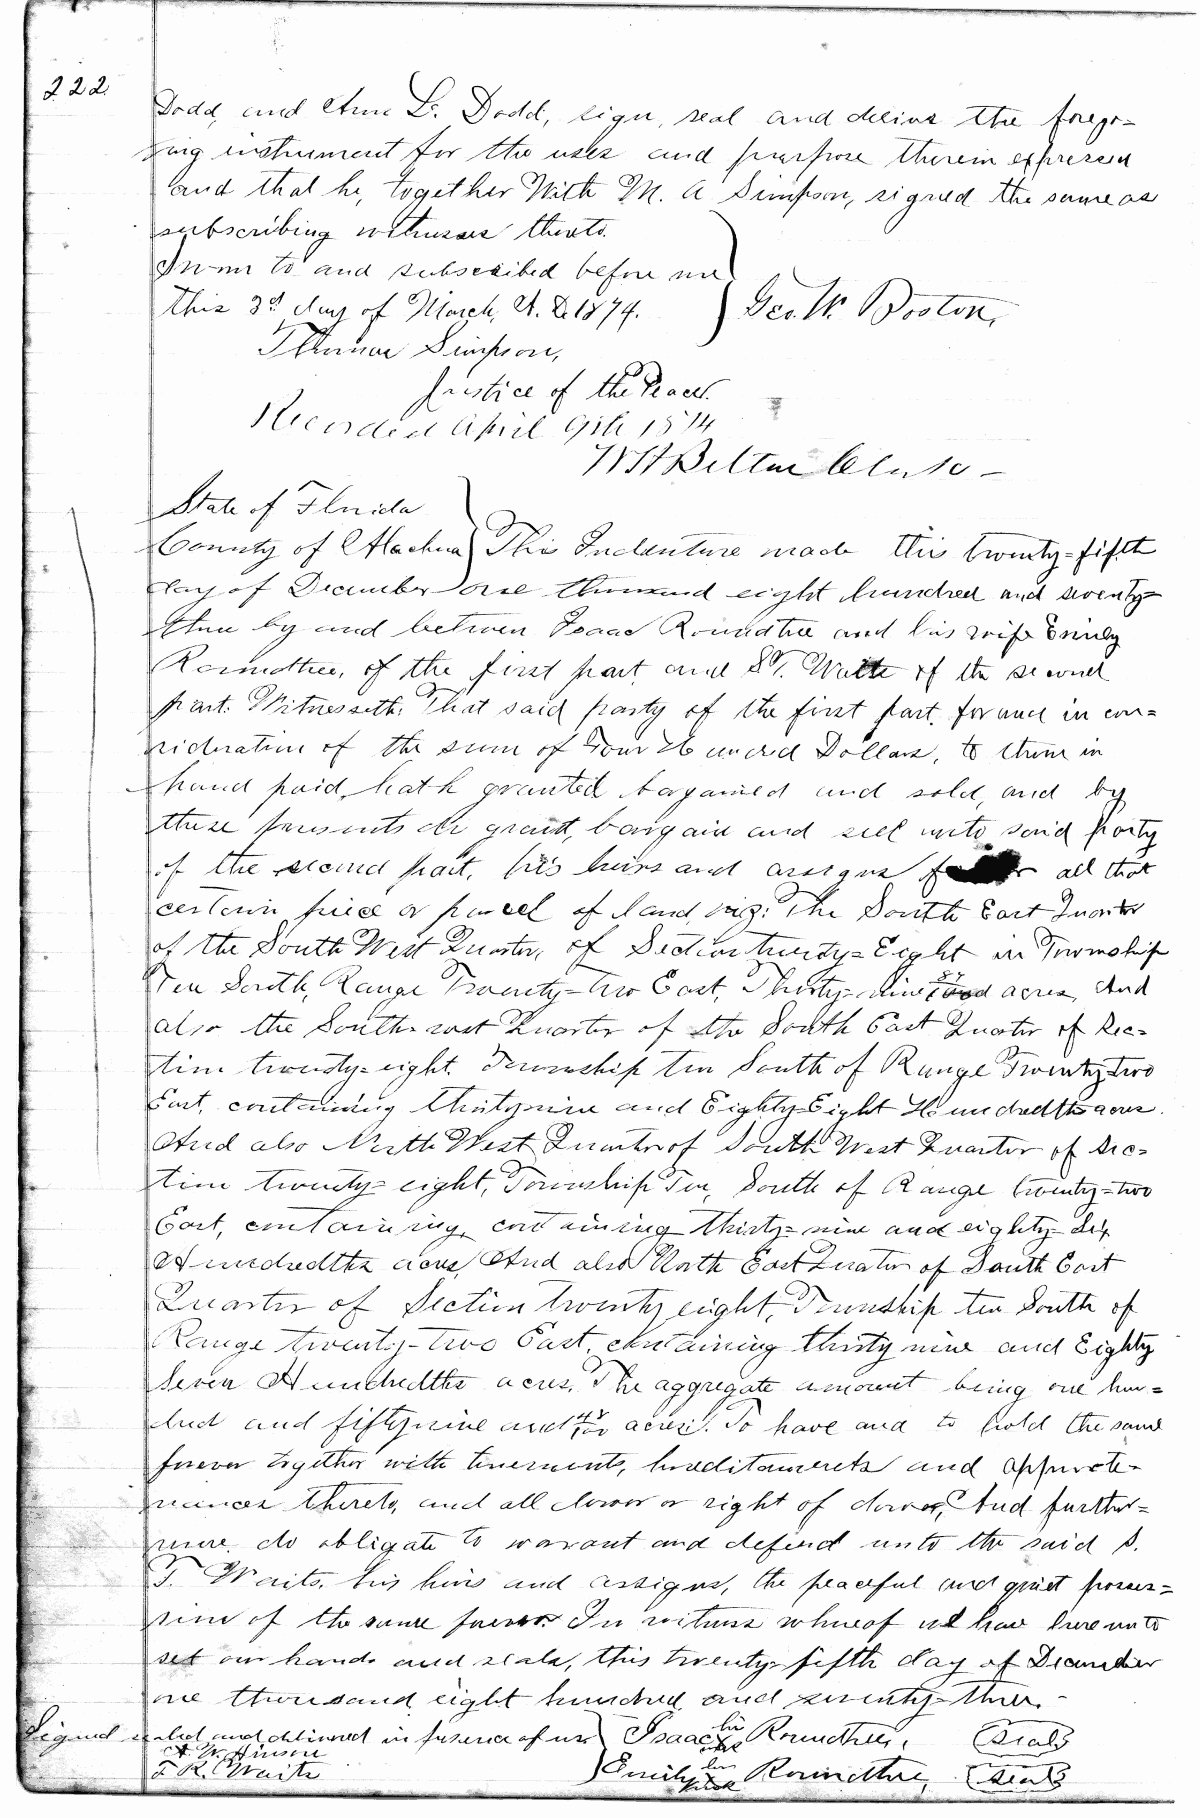 222
Dodd, and Ann L. Dodd, sign, seal and deliver the forego=
ing instrument for the uses and purpose therein expressed
and that he, together With M. A Simpson, signed the same as
subscribing witnesses thereto.
Sworn to and subscribed before me
this 3d day of March, A. D. 1874. Geo. W. Boston,
Thomas Simpson,
Justice of the Peace.
Recorded April 9th 1874
W H Belton Clerk
State of Florida
County of Alachua } This Indenture made this twenty=fifth
day of December one thousand eight hundred and seventy=
three by and between Isaac Roundtree and his wife Emily
Roundtree, of the first part and S T. Waits of the second
part. Witnesseth, That said party of the first part, for and in con=
sideration of the sum of Four Hundred Dollars, to them in
hand paid, hath granted bargained and sold, and by
these presents do grant, bargain and sell unto said party
of the second part, his heirs and assigns all that
certain piece or parcel of land viz: The South East Quarter
of the South West Quarter, of Section twenty=Eight in Township
Ten South, Range Twenty=two East, Thirty=nine 87/100 acres, And
also the South west Quarter of the South East Quarter of Sec=
tion twenty=eight. Township ten South of Range Twenty=two
East, containing thirty nine and Eighty=Eight Hundredths acres.
And also North West Quarter of South West Quarter of Sec=
tion twenty=eight, Township Ten, South of Range twenty=two
East, containing, containing thirty=nine and eighty=six
Hundredths acres, And also North East Quarter of South East
Quarter of Section twenty eight, Township ten South of
Range twenty=two East, containing thirty nine and Eighty
Seven Hundredths acres. The aggregate amount being one hun=
dred and fifty nine and 48/100 acres. To have and to hold the same
forever together with tenements, hereditaments and appurte=
nances thereto, and all dower or right of dower, And further=
more, do obligate to warrant and defend unto the said S.
T. Waits, his heirs and assigns, the peaceful and quiet posses=
sion of the same forever. In witness whereof we have hereunto
set our hands and seals, this twenty=fifth day of December
one thousand eight hundred and seventy=three.
Signed sealed and delivered in presence of us Isaac his X mark Roundtree, (Seal)
T. R. Waits Emily her X mark Roundtree, (Seal)